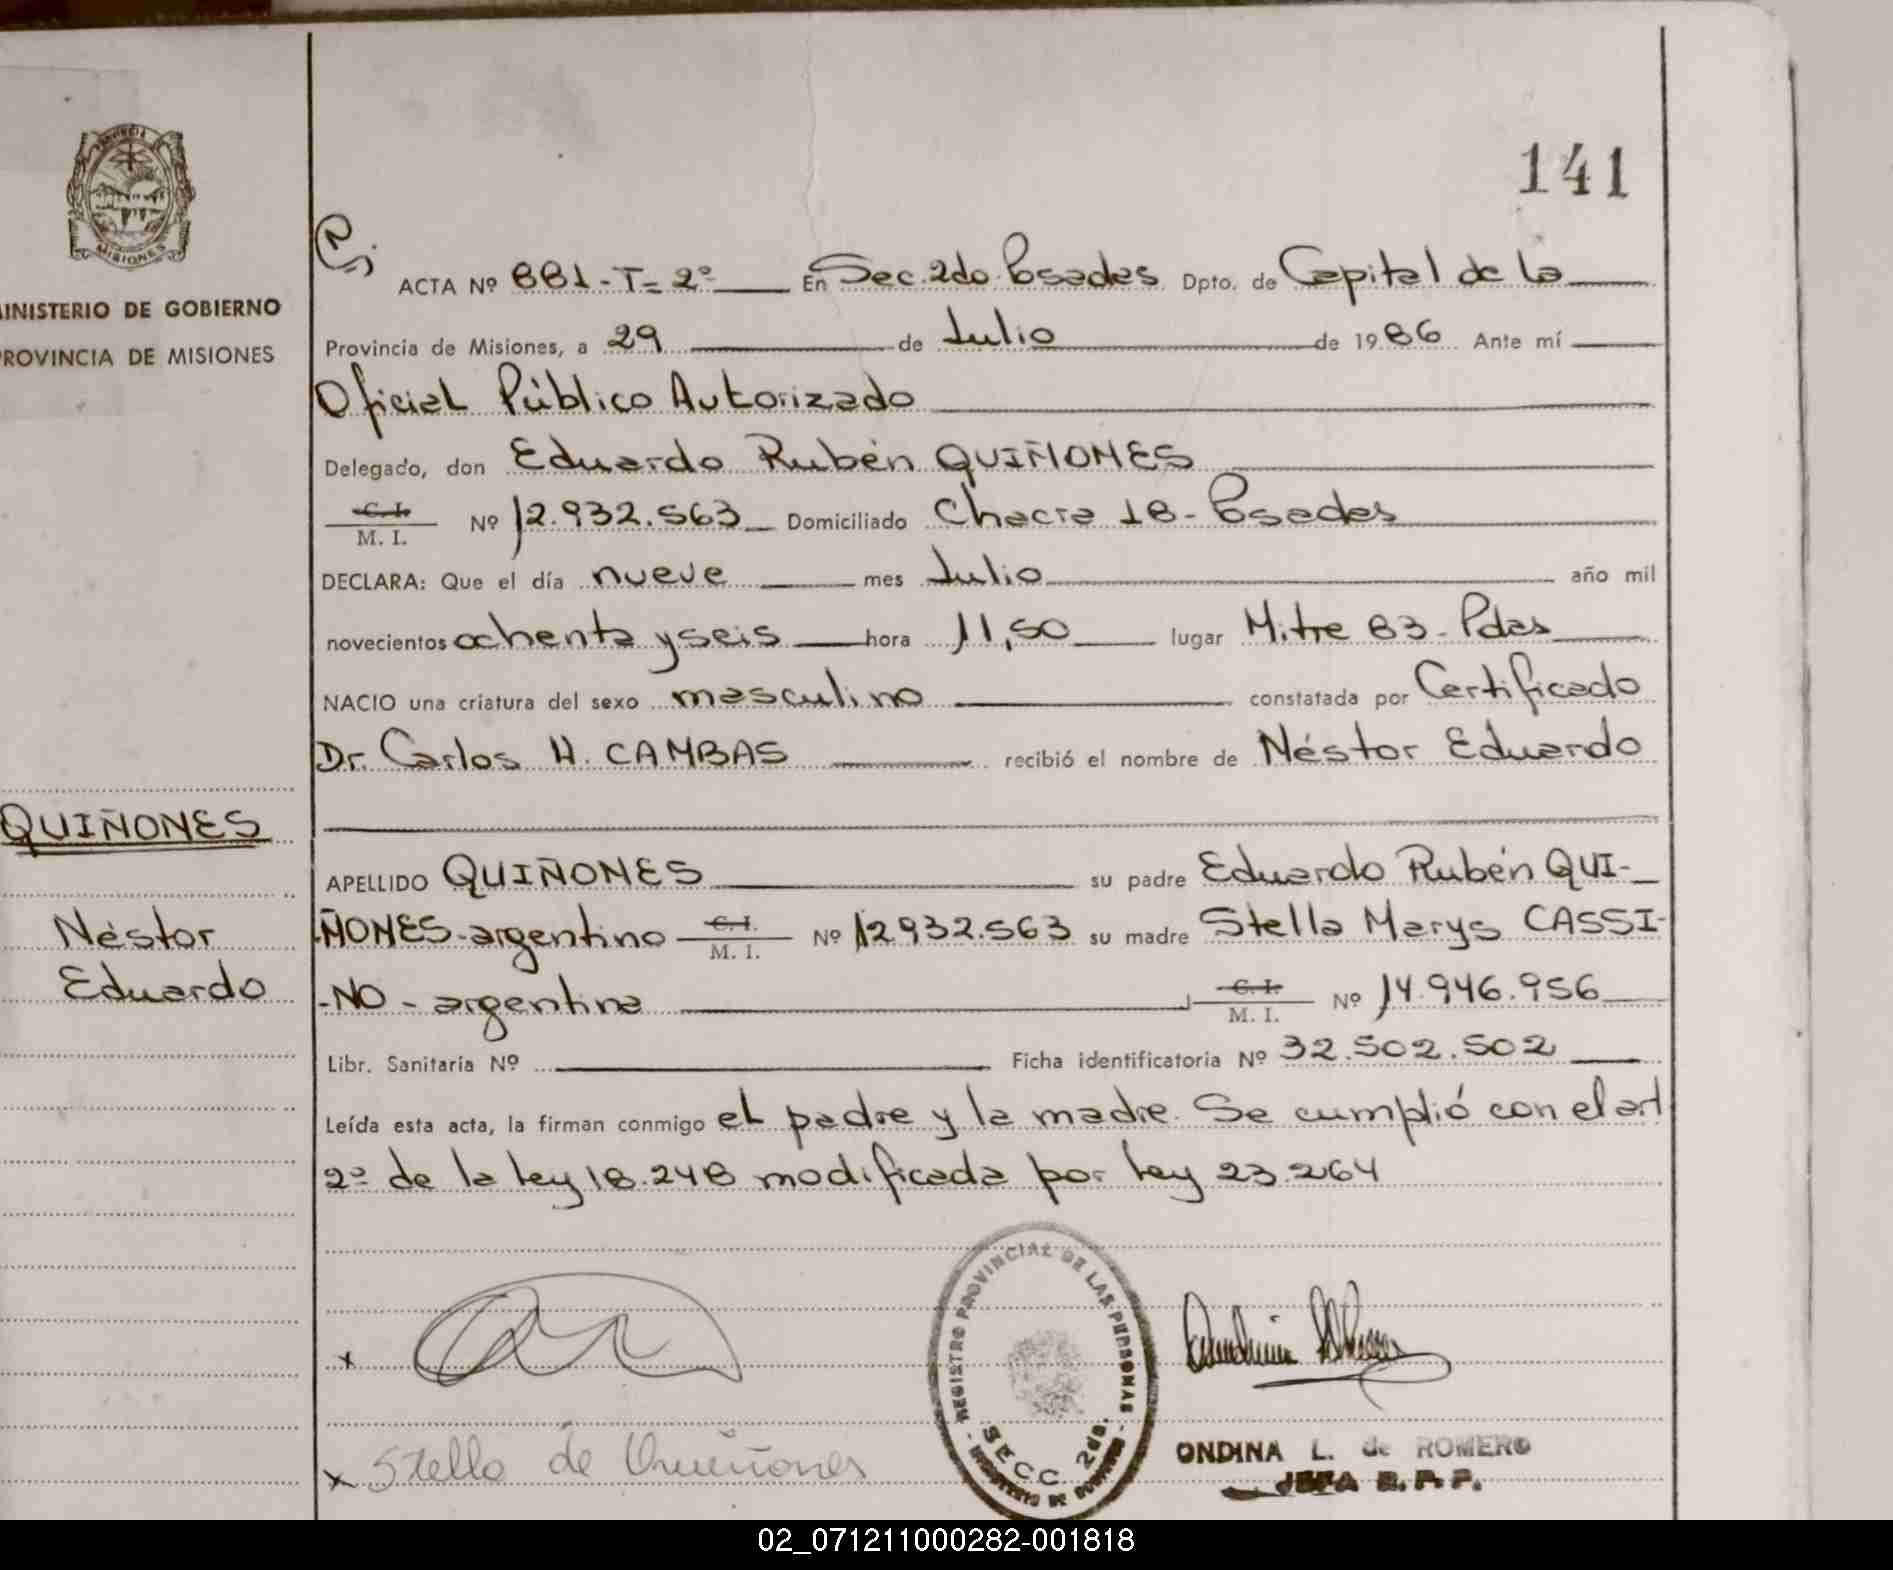 141
PROVINCIA
MISIONES
MINISTERIO DE GOBIERNO
PROVINCIA DE MISIONES
ACTA Nº 881-T=2º En Sec. 2do. Posadas Dpto. de Capital de la
Provincia de Misiones, a 29 de Julio de 1986 Ante mí
Oficial Público Autorizado
Delegado, don Eduardo Rubén QUIÑONES
C. I.
M. I. Nº 12.932.563 Domiciliado Chacra 18 - Posadas
DECLARA: Que el día nueve mes Julio año mil
novecientos ochenta y seis hora 11,50 lugar Mitre 83 - Pdas
NACIO una criatura del sexo masculino constatada por Certificado
Dr. Carlos H. CAMBAS recibió el nombre de Néstor Eduardo
QUIÑONES
Néstor
Eduardo
APELLIDO QUIÑONES su padre Eduardo Rubén QUI-
-ÑONES-argentino C.I. M. I. Nº 12932.563 su madre Stella Marys CASSI-
-NO - argentina C. I. M. I. Nº 14.946.956
Libr. Sanitaria Nº Ficha identificatoria Nº 32.502.502
Leída esta acta, la firman conmigo el padre y la madre. Se cumplió con el art
2º de la ley 18.248 modificada por ley 23.264
x
x Stella de Quiñones
REGISTRO PROVINCIAL DE LAS PERSONAS
SECC. 2da.
- MINISTERIO DE GOBIERNO -
ONDINA L. de ROMERO
JEFA R. P. P.
02_071211000282-001818